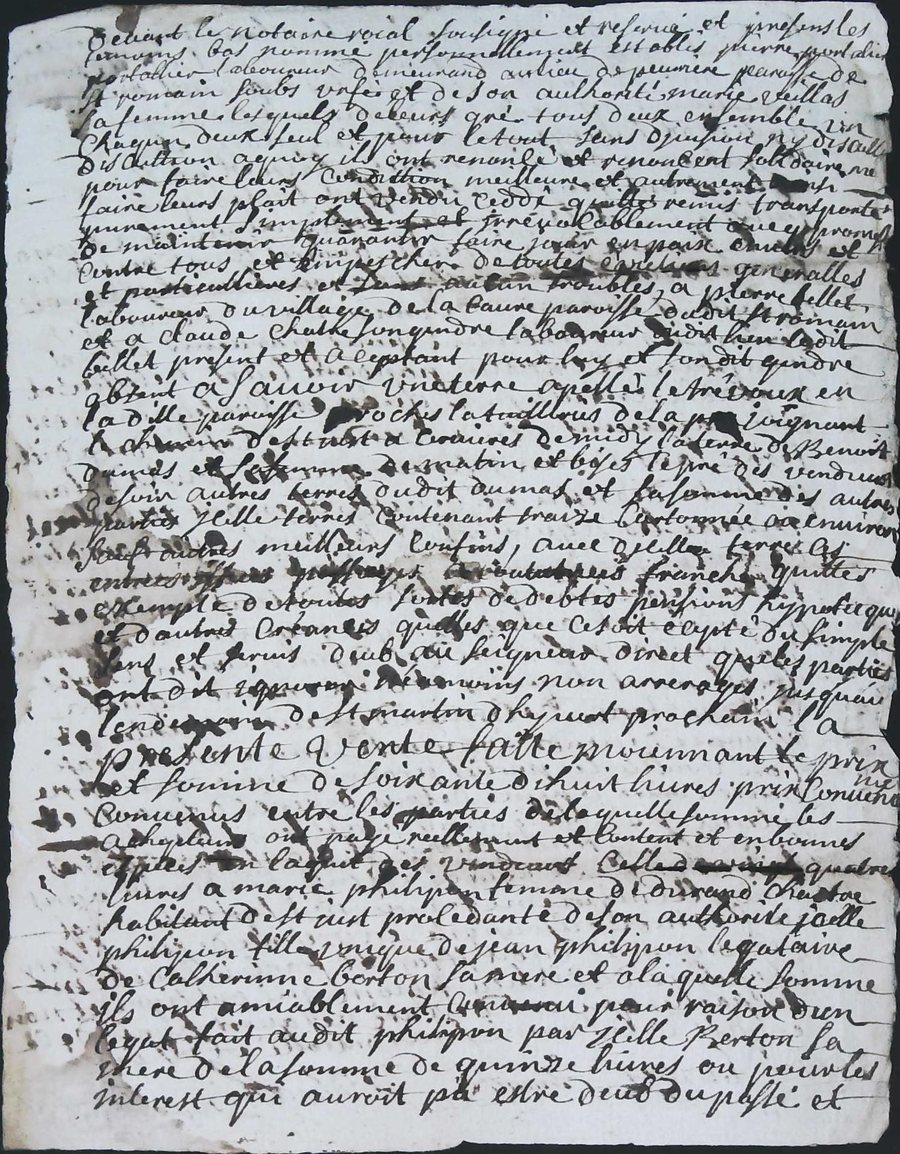 Devant le Notaire roial soussigné et reservé et presens les
temoins bas nommé personnellement establis pierre
laboureur demeurand au lieu de paroisse de
st romain soubs urfé et de son authorité marie veillas
sa femme lesquels de leurs gré tous deux ensemble un
chaqun deux seul et pour le tout sans division ny discution
discution a quoy ils ont renoncé et renoncent solidaireme
pour faire leurs condition meilleure et autrement
faire leurs plait ont vendu ceddé quitté remis transporté
purement simplement et irrevocablement avec promesse
de maintenir guarantir faire jouir en paix envers et
contre tous et empescher de toutes evictions generalles
et particullieres et sans aucun troubles, a pierre bellet
laboureur du village de la baure paroisse dudit st romain
et a claude chatre son gindre laboureur dudit lieu ledit
bellet present et aceptant pour luy et sondit gindre
absent asavoir une terre apellée le trévoux en
ladille paroisse proches la de la joignant
le chemin de st just a cervieres de midy la terre de Benoit
dumas et sa femme de matin et bise le pré des vendeurs
de soir autres terres dudit dumas et sa femme des autres
parties jcelle terres contenant traize cartonnée ou environ
sauf autres meilleurs confins, avec jcelle terre les
entrées passages franche quittes
exemple de toutes sortes de debtes pensions hypoteque
et d'autres créances quelles que ce soit excepté du simple
sens et servis deub au seigneur direct que les parties
ont dit ignorer néamoins non arrerages jusqu'au
lendemain de st martin d'hyvert prochain la
presente vente faitte moiennant le prix
et somme de soixante dihuit livres prix convenu
convenus entre les parties de laquelle somme les
achepteurs ont payé reellement et content et en bonnes
espèces en l'aquit des vendeurs celle de vingt quatre
livres a marie philipon femme de durand chastre
habitant de st just procedante de son authorité jcelle
philipon fille unique de jean philipon legataire
de catherinne berton sa mere et a laquelle somme
jls ont amiablement pour raison d'un
legat fait audit philipon par jcelle Berton sa
mere de la somme de quinze livres ou pour les
interest qui auroit pu estre deub du passé et